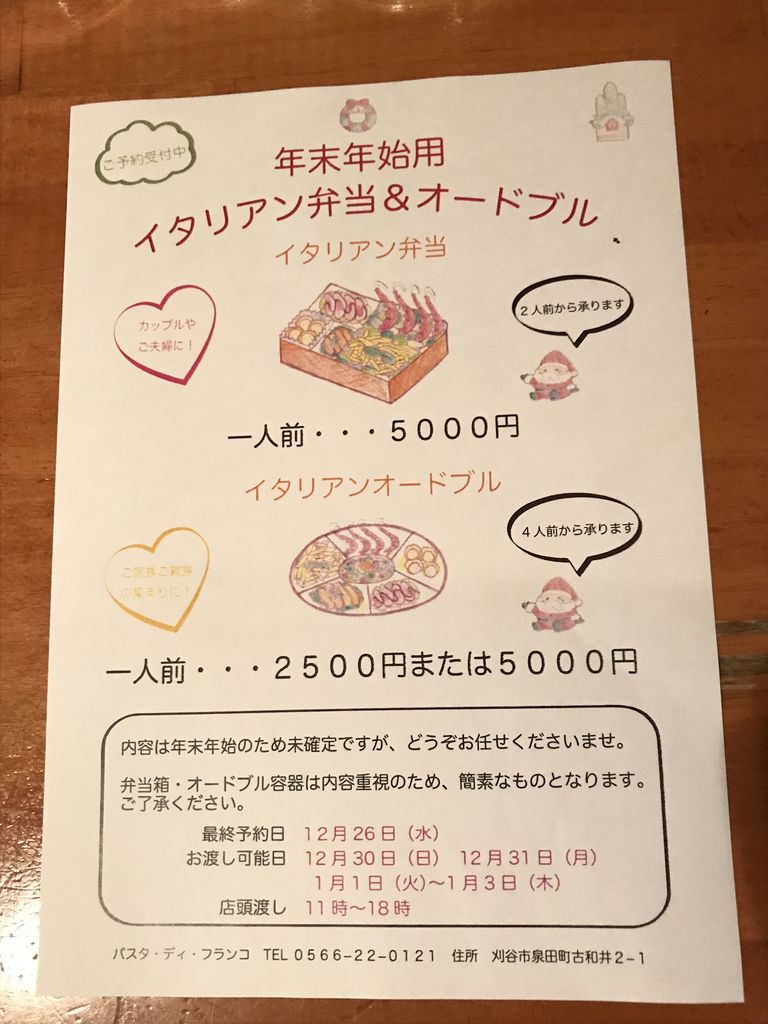 ご予約受付中
年末年始用
イタリアン弁当＆オードブル
イタリアン弁当
カップルや
ご夫婦に！
２人前から承ります
一人前・・・５０００円
イタリアンオードブル
ご家族ご親族
の集まりに！
４人前から承ります
一人前・・・２５００円または５０００円
内容は年末年始のため未確定ですが、どうぞお任せくださいませ。
弁当箱・オードブル容器は内容重視のため、簡素なものとなります。
ご了承ください。
最終予約日　１２月２６日（水）
お渡し可能日　１２月３０日（日）　１２月３１日（月）
１月１日（火）～１月３日（木）
店頭渡し　１１時～１８時
パスタ・ディ・フランコ　TEL ０５６６－２２－０１２１　住所　刈谷市泉田町古和井２－１